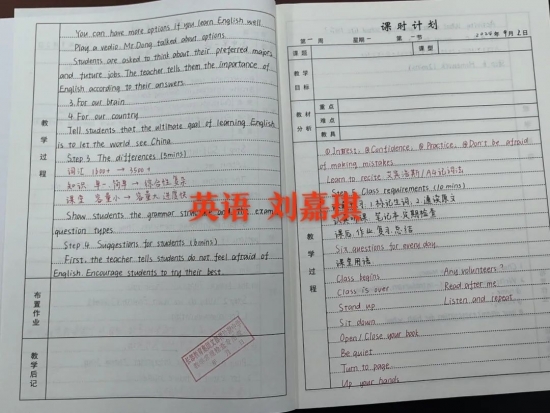 You can have more options if you learn English well.
Play a vedio. Mr. Dong talked about options.
Students are asked to think about their preferred majors
and future jobs. The teacher tells them the importance of
English according to their answers.
3. For our brain
4. For our country
Tell students that the ultimate goal of learning English
is to let the world see China.
Step 3 The differences (5mins)
词汇 1600+ → 3500+
知识 单一,简单 → 综合性复杂
课堂 容量小 → 容量大,进度快
Show students the grammar structure and the exam
question types.
Step 4 Suggestions for students (8mins)
First, the teacher tells students do not feel afraid of
English. Encourage students to try their best.
教学过程
布置作业
教学后记
英语 刘嘉琪
课时计划
第一周 星期一 第一节 2024年9月2日
课题 课型
教学目标
教材分析
重点
难点
教具
教学过程
① Intrest, ② Confidence, ③ Practice, ④ Don't be afraid
of making mistakes.
Learn to recite 艾宾浩斯/A4记词法
Step 5 Class requirements (10 mins)
1. 标记生词, 2. 通读原文
听课 笔记本,定期检查
课后,作业 复习,总结
Six questions for everyday.
课堂用语
Class begins. Any volunteers?
Class is over Read after me
Stand up Listen and repeat
Sit down
Open/Close your book
Be quiet.
Turn to page..
Up your hands